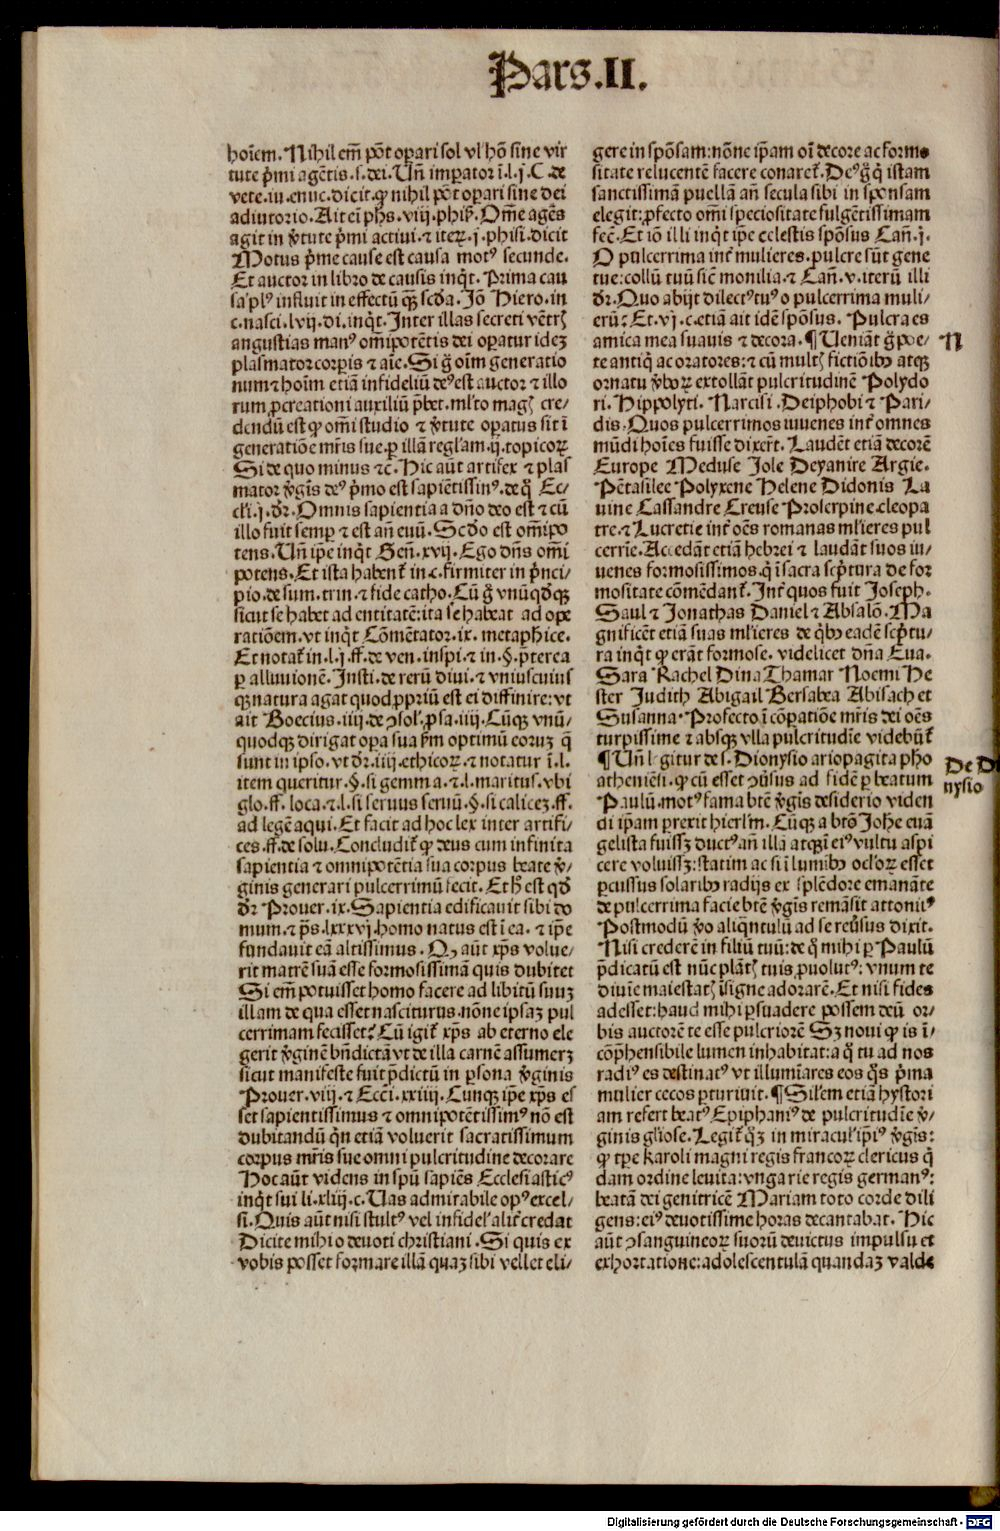 Pars.II.
hoīem. Nihil em̄ pōt oꝑari sol vl' hō sine vir
tute p̄mi agētis .s. dei. Un̄ imꝑator ī.l.j.C.de
vete.iu.enuc.dicit.ꝙ nihil pōt oꝑari sine dei
adiutorio. Ait eī ph̄s.viij.phis̄. Om̄e agēs
agit in v̄tute p̄mi actiui.⁊ iteꝝ.j.phisi.dicit
Motus p̄me cause est causa motꝰ secunde.
Et auctor in libro de causis inq̄t. Prima cau
sa plꝰ influit in effectū qꝫ scd̄a. Jō Hiero.in
c.nasci.lvij.di.inq̄t. Inter illas secreti vētrꝭ
angustias manꝰ om̄ipotētis dei oꝑatur ideꝫ
plasmator corꝑis ⁊ aīe. Si g̊ oīm generatio
num ⁊ hoīm etiā infideliū deꝰ est auctor ⁊ illo
rum ꝓcreationi auxiliū p̄bet. ml'to magꝭ cre⸗
dendū est ꝙ om̄i studio ⁊ v̄tute oꝑatus sit ī
generatiōe mr̄is sue.ꝑ illā regl'am.ij.topicoꝝ
Si de quo minus ⁊c̄. Hic aūt artifex ⁊ plas
mator v̄gīs deꝰ p̄mo est sapiētissimꝰ.de q̊ Ec⸗
cl'i.j.dr̄. Omnis sapientia a dn̄o deo est ⁊ cū
illo fuit semꝑ ⁊ est an̄ euū. Scd̄o est om̄ipo
tens. Un̄ ip̄e inq̄t Gen̄.xvij. Ego dn̄s om̄i
potens. Et ista habent̄ in.c.firmiter in p̄nci⸗
pio.de sum.trin.⁊ fide catho. Cū g̊ vnūqd̄qꝫ
sicut se habet ad entitatē:ita se habeat ad ope
ratiōem. vt inq̄t Cōmētator.ix. metaphice.
Et notat̄ in.l.j.ff.de ven.inspi.⁊ in.§.p̄terea
ꝑ alluuionē. Insti.de rerū diui.⁊ vniuscuius
qꝫ natura agat quod ꝓpriū est ei diffinire: vt
ait Boecius.iiij.de ꝯsol'.ꝓsa.iiij. Cūqꝫ vnū⸗
quodqꝫ dirigat oꝑa sua p̄m optimū eoruꝫ q̄
sunt in ipso.vt dr̄.iiij.ethicoꝝ.⁊ notatur ī.l.
item queritur.§.si gemma.⁊.l.maritus.vbi
glo.ff.loca.⁊.l.si seruus seruū.§.si caliceꝫ.ff.
ad legē aqui. Et facit ad hoc lex inter artifi⸗
ces.ff.de solu. Concludit̄ ꝙ deus cum infinita
sapientia ⁊ omnipotētia sua corpus beate v̄⸗
ginis generari pulcerrimū fecit. Et h̄ est qd̄
dr̄ Prouer.ix. Sapientia edificauit sibi do
mum.⁊ p̄s.lxxxvj.homo natus est ī ea. ⁊ ip̄e
fundauit eā altissimus. Qꝫ aūt xp̄s volue⸗
rit matrē suā esse formosissimā quis dubitet
Si em̄ potuisset homo facere ad libitū suuꝫ
illam de qua esset nasciturus.nōne ipsaꝫ pul
cerrimam fecisset? Cū igit̄ xp̄s ab eterno ele
gerit v̄ginē bn̄dictā vt de illa carnē assumerꝫ
sicut manifeste fuit p̄dictū in ꝑsona v̄ginis
Prouer.viij.⁊ Ecc̄i.xxiiij. Cunqꝫ ip̄e xp̄s es
set sapientissimus ⁊ omnipotētissimꝰ nō est
dubitandū q̄n etiā voluerit sacratissimum
corpus mr̄is sue omni pulcritudine decorare
Hoc aūt videns in spū sapiēs Ecclesiasticꝰ
inq̄t sui li.xliij.c. Uas admirabile opꝰ excel⸗
si. Quis aūt nisi stultꝰ vel infidel' alit̄ credat
Dicite mihi o deuoti christiani. Si quis ex
vobis posset formare illā quaꝫ sibi vellet eli⸗
gere in spōsam:nōne ip̄am oī decore ac formo
sitate relucentē facere conaret̄. Deꝰ g̊ q̄ istam
sanctissimā puellā an̄ secula sibi in sponsam
elegit:ꝓfecto om̄i speciositate fulgētissimam
fec̄. Et iō illi inq̄t ip̄e celestis spōsus Can̄.j.
O pulcerrima int̄ mulieres.pulcre sūt gene
tue:collū tuū sic̄ monilia.⁊ Can̄.v.iterū illi
dr̄. Quo abijt dilectꝰ tuꝰ o pulcerrima muli⸗
erū? Et.vj.c.etiā ait idē spōsus. Pulcra es
amica mea suauis ⁊ decora. ¶ Ueniāt g̊ poe⸗
te antiq̄ ac oratores:⁊ cū multꝭ fictiōibꝰ atqꝫ
ornatu v̄boꝝ extollāt pulcritudinē Polydo
ri. Hippolyti. Narcisi. Deiphobi ⁊ Pari⸗
dis. Quos pulcerrimos iuuenes int̄ omnes
mūdi hoīes fuisse dixer̄t. Laudēt etiā decorē
Europe Meduse Jole Deyanire Argie.
Pētasilee Polyxene Helene Didonis La
uine Cassandre Creuse Proserpine.cleopa
tre.⁊ Lucretie int̄ oēs romanas ml'ieres pul
cerrīe. Accedāt etiā hebrei ⁊ laudāt suos iu⸗
uenes formosissimos.q̄ ī sacra scp̄tura de for
mositate cōmēdant̄. Int̄ quos fuit Joseph.
Saul ⁊ Jonathas Daniel ⁊ Absalō. Ma
gnificēt etiā suas ml'ieres de q̄bꝰ eadē scp̄tu⸗
ra inq̄t ꝙ erāt formose. videlicet dn̄a Eua.
Sara Rachel Dina Thamar Noemi He
ster Judith Abigail Bersabea Abisach et
Susanna. Profecto ī cōꝑatiōe mr̄is dei oēs
turpissime ⁊ absqꝫ vlla pulcritudīe videbūt̄
¶ Un̄ l'gitur de s. Dionysio ariopagita pho
atheniēsi.ꝙ cū esset ꝯūsus ad fidē ꝑ beatum
Paulū.motꝰ fama btē v̄gīs desiderio viden
di ip̄am ꝑrexit hierl'm. Cūqꝫ a btō Joh̄e euā
gelista fuissꝫ ductꝰ an̄ illā atqꝫ ī eiꝰ vultu aspi
cere voluissꝫ:statim ac si ī lumībꝰ ocl'oꝝ esset
ꝑcussus solaribꝰ radijs ex splēdore emanāte
de pulcerrima facie btē v̄gīs remāsit attonitꝰ
Postmodū v̄o aliq̄ntulū ad se reūsus dixit.
Nisi crederē in filiū tuū:de q̊ mihi ꝑ Paulū
p̄dicatū est nūc plātꝭ tuis ꝓuolutꝰ: vnum te
diuīe maiestatꝭ īsigne adorarē. Et nisi fides
adesset:haud mihi ꝑsuadere possem deū or⸗
bis auctorē te esse pulcriorē Sꝫ noui ꝙ is ī⸗
cōp̄hensibile lumen inhabitat:a q̊ tu ad nos
radiꝰ es destinatꝰ vt illumīares eos q̄s p̄ma
mulier cecos ꝑturiuit. ¶ Sil'em etiā hystori
am refert beatꝰ Epiphaniꝰ de pulcritudīe v̄⸗
ginis gl'iose. Legit̄ q̄ꝫ in miracul' ip̄iꝰ v̄gīs:
ꝙ tp̄e karoli magni regis francoꝝ clericus q̄
dam ordine leuita:vngarie regis germanꝰ:
beatā dei genitricē Mariam toto corde dili
gens:eiꝰ deuotissime horas decantabat. Hic
aūt ꝯsanguineoꝝ suorū deuictus impulsu et
exhortatione:adolescentulā quandaꝫ valde
N
De Di
nysio
Digitalisierung gefördert durch die Deutsche Forschungsgemeinschaft - DFG